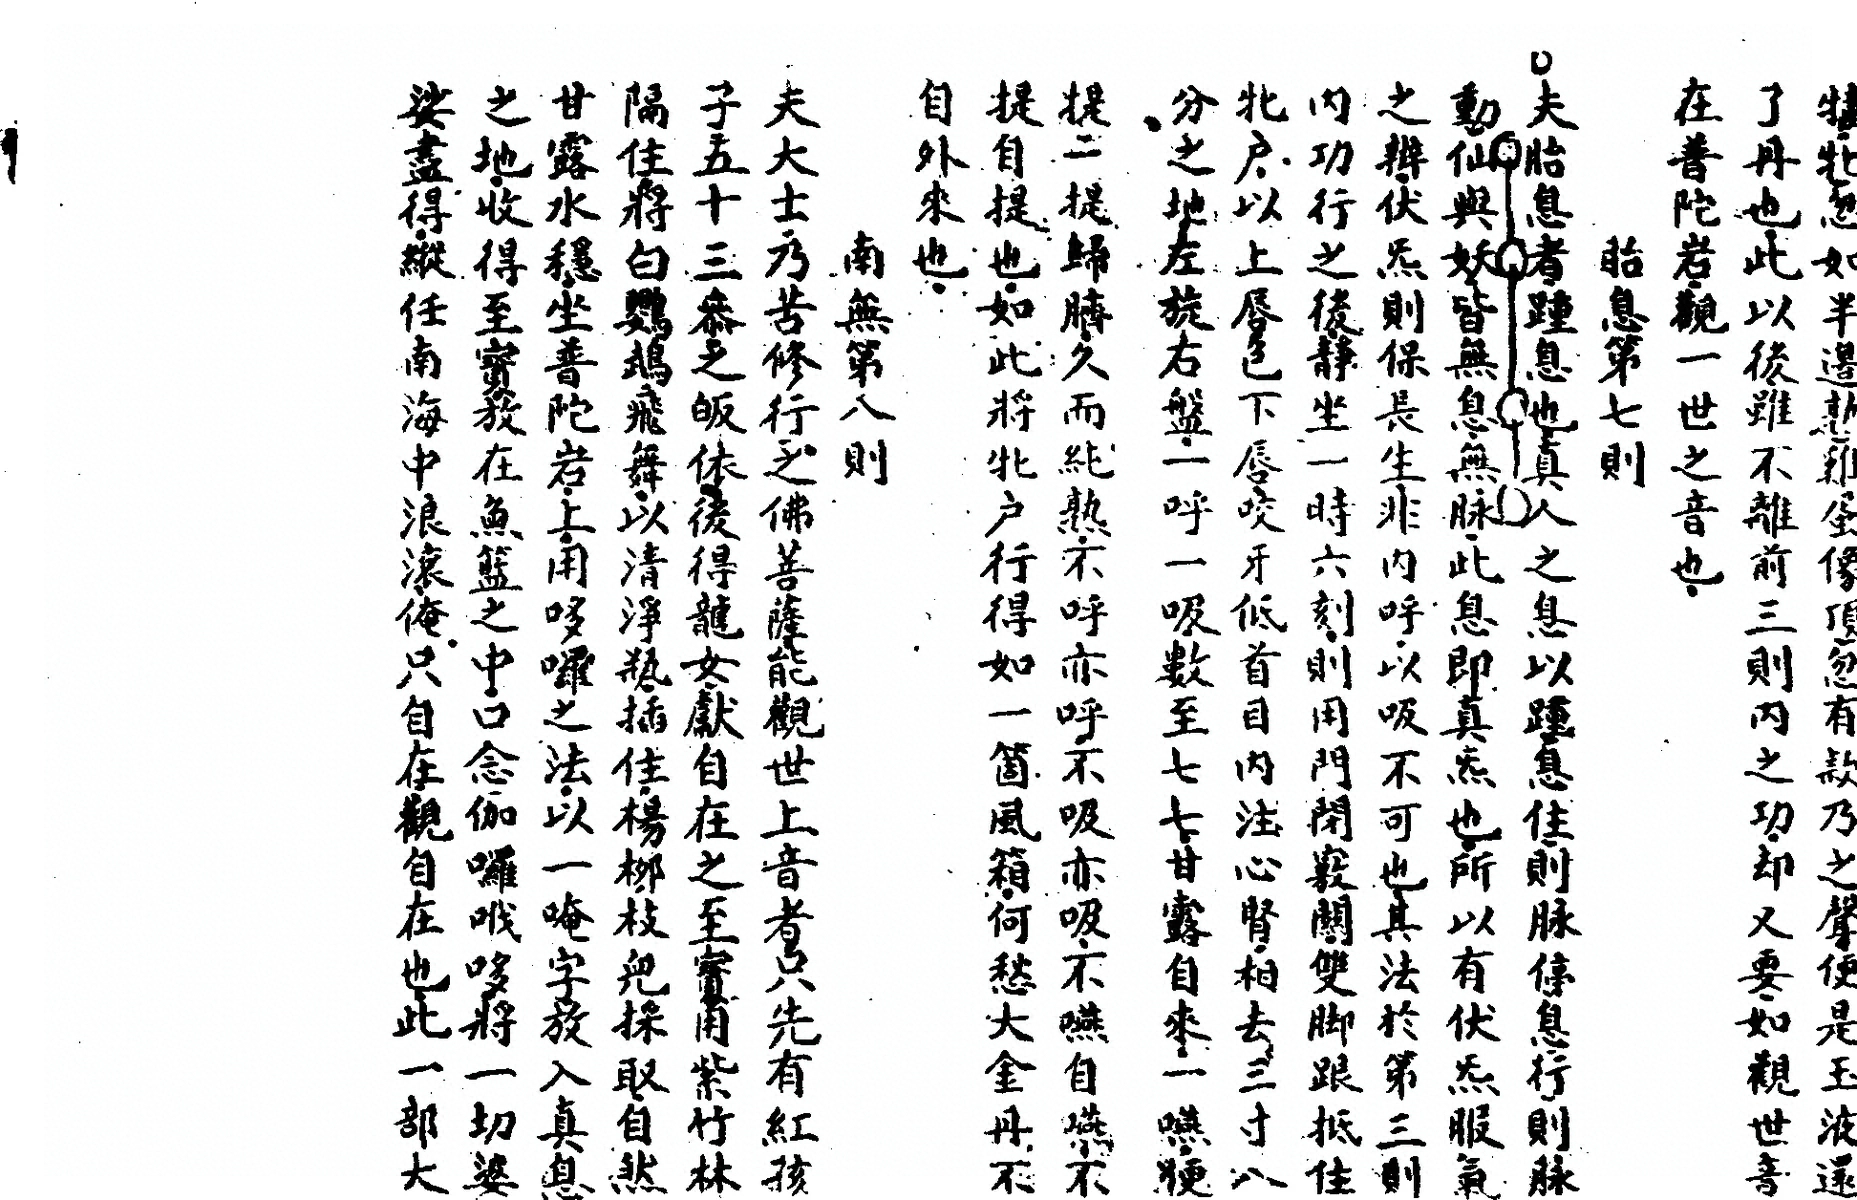 牡牝忽如半邊熟雞蛋像頂忽有款乃之聲便是玉液還
了丹也此以後雖不離前三則內之功却又要如觀世音
在普陀岩觀一世之音也
胎息第七則
夫胎息者踵息也真人之息以踵息住則脉停息行則脉
動仙與妖皆無息無脉此息即真炁也所以有伏炁服氣
之辨伏炁則保長生非內呼以吸不可也其法於第三則
內功行之後靜坐一時六刻則用門閉竅關雙脚跟抵住
牝户以上唇包下唇咬牙低首目內注心腎相去三寸八
分之地左旋右盤一呼一吸數至七七甘露自來一嚥便
提二提歸臍久而純熟不呼亦呼不吸亦吸不嚥自嚥不
提自提也如此將牝户行得如一箇風箱何愁大金丹不
自外來也
南無第八則
夫大士乃苦修行之佛菩薩能觀世上音者只先有紅孩
子五十三叅之皈依後得龍女獻自在之至寶用紫竹林
隔住將白鸚鵡飛舞以清淨瓶插住楊柳枝兒採取自然
甘露水穩坐普陀岩上用哆囉之法以一唵字放入真息
之地收得至寶放在魚籃之中口念伽囉哦哆將一切婆
娑盡得縱任南海中浪滾俺只自在觀自在也此一部大